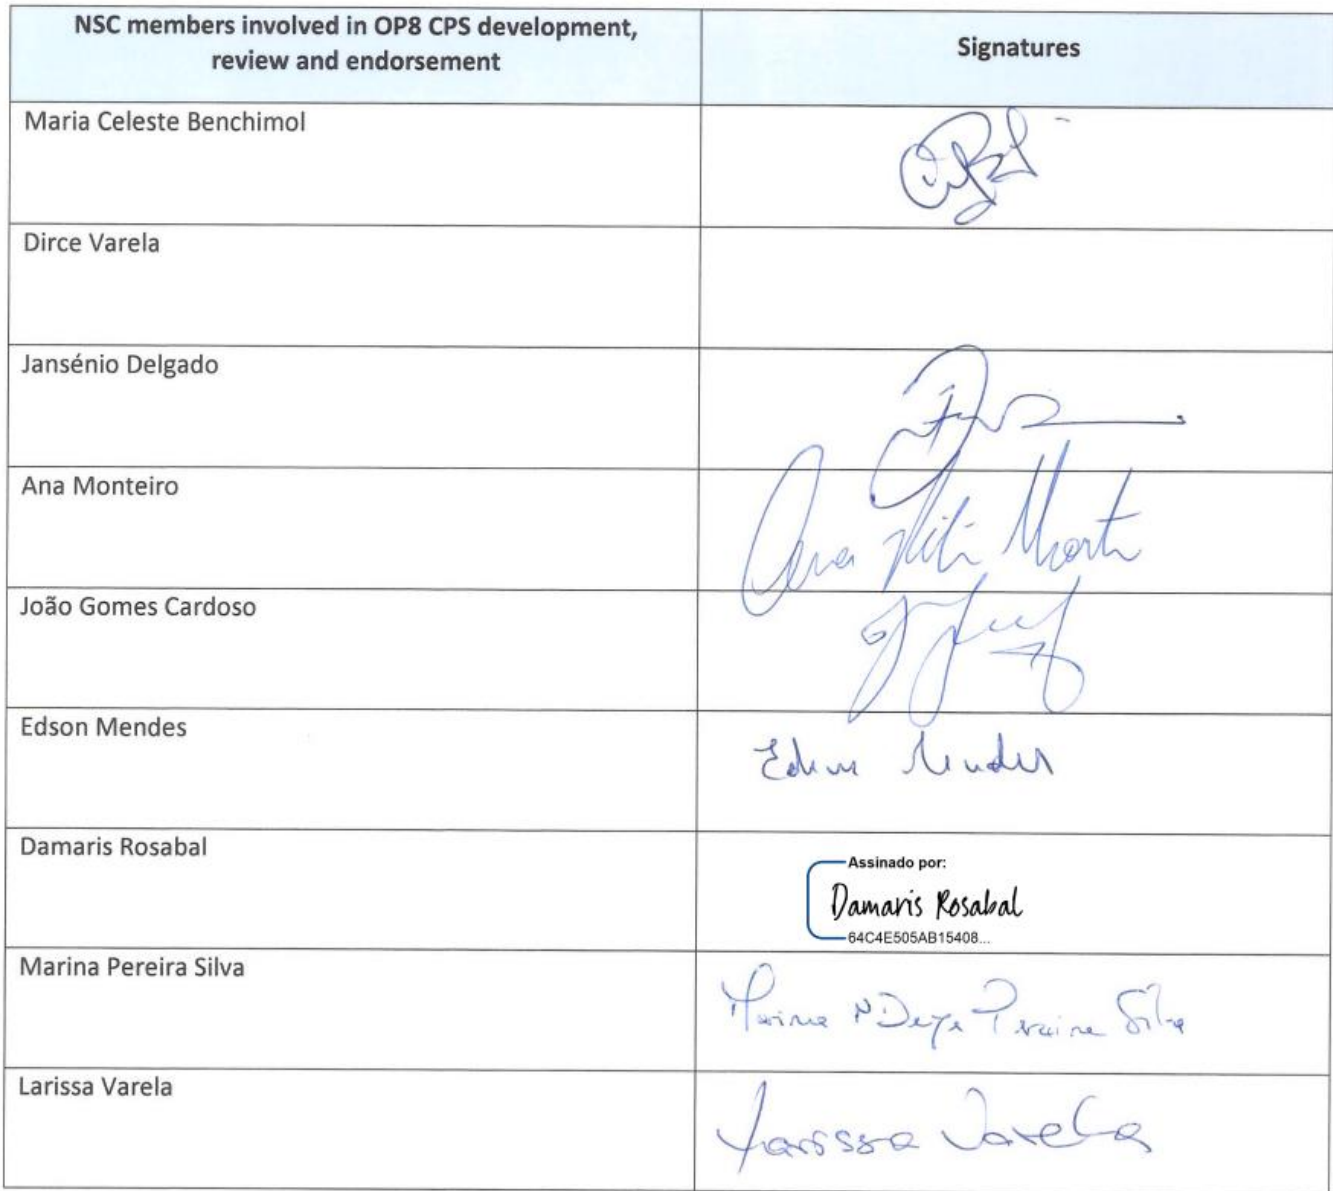 NSC members involved in OP8 CPS development,
review and endorsement
Signatures
Maria Celeste Benchimol
Dirce Varela
Jansénio Delgado
Ana Monteiro
João Gomes Cardoso
Edson Mendes
Edson Mendes
Damaris Rosabal
Assinado por:
Damaris Rosabal
64C4E505AB15408...
Marina Pereira Silva
Pereira Silva
Larissa Varela
Larissa Varela